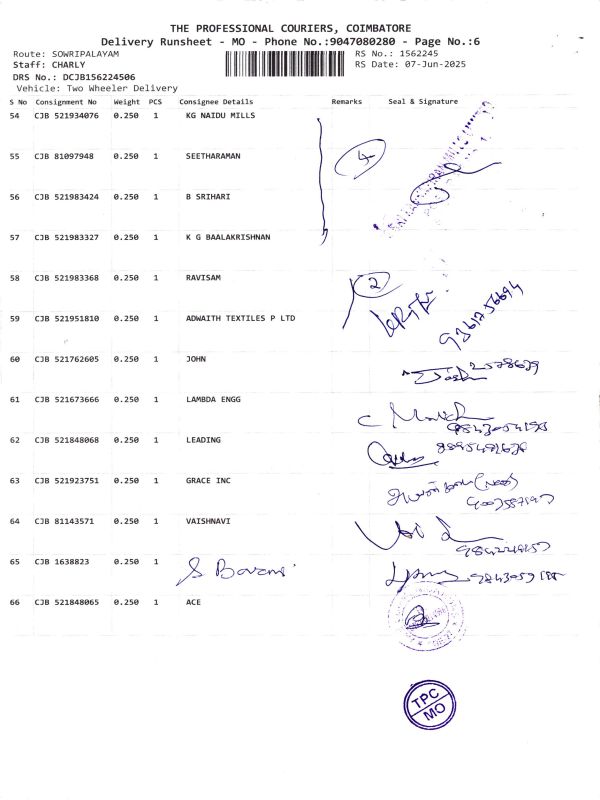 THE PROFESSIONAL COURIERS, COIMBATORE
Delivery Runsheet - MO - Phone No.:9047080280 - Page No.:6
Route: SOWRIPALAYAM RS No.: 1562245
Staff: CHARLY RS Date: 07-Jun-2025
DRS No.: DCJB156224506
Vehicle: Two Wheeler Delivery
S No Consignment No Weight PCS Consignee Details Remarks Seal & Signature
54 CJB 521934076 0.250 1 KG NAIDU MILLS
4
55 CJB 81097948 0.250 1 SEETHARAMAN
56 CJB 521983424 0.250 1 B SRIHARI
57 CJB 521983327 0.250 1 K G BAALAKRISHNAN
58 CJB 521983368 0.250 1 RAVISAM 2
59 CJB 521951810 0.250 1 ADWAITH TEXTILES P LTD 9361756694
60 CJB 521762605 0.250 1 JOHN
61 CJB 521673666 0.250 1 LAMBDA ENGG
62 CJB 521848068 0.250 1 LEADING
63 CJB 521923751 0.250 1 GRACE INC
64 CJB 81143571 0.250 1 VAISHNAVI
65 CJB 1638823 0.250 1
66 CJB 521848065 0.250 1 ACE
TPC
MO